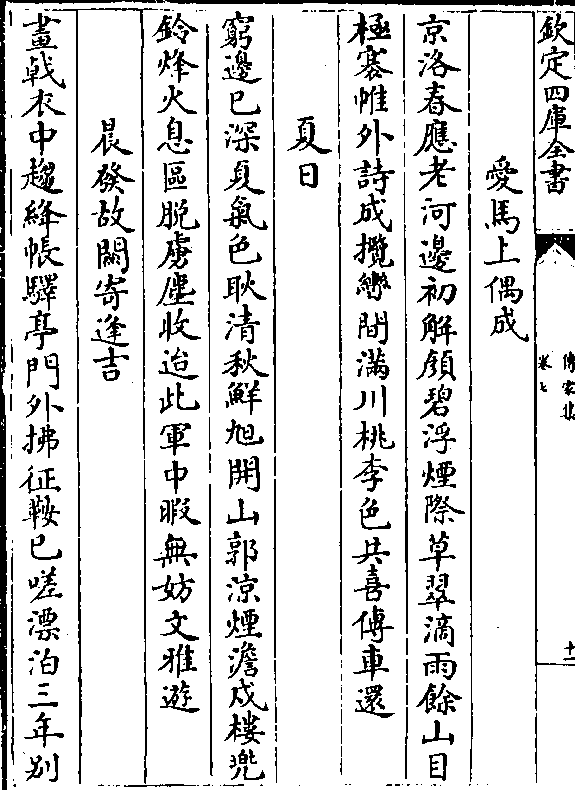 欽定四庫全書
傳家集
卷七
十一
愛馬上偶成
京洛春應老河邊初解顔碧浮煙際草翠滴雨餘山目
極褰帷外詩成攬轡間滿川桃李色共喜傳車還
夏日
窮邊已深夏氣色耿清秋鮮旭開山郭涼煙澹戍樓兜
鈴烽火息區脱虜塵收迨此軍中暇無妨文雅遊
晨發故關寄逢吉
畫戟衣中趨絳帳驛亭門外拂征鞍已嗟漂泊三年别